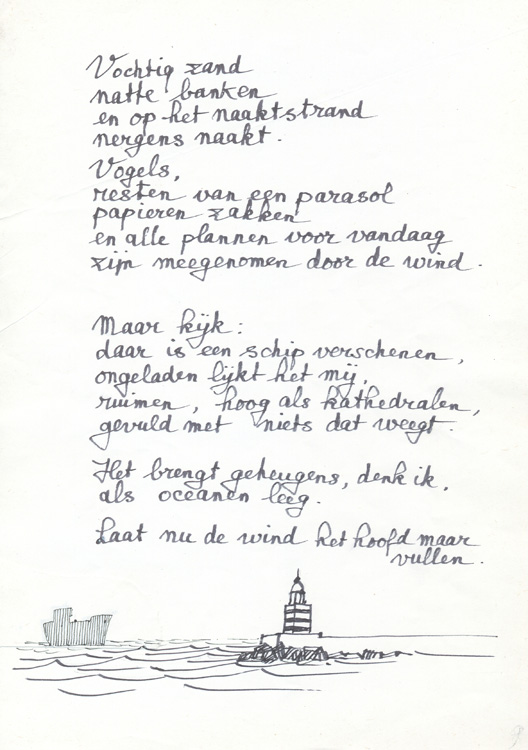 Vochtig zand
natte banken
en op het naaktstrand
nergens naakt.
Vogels,
resten van een parasol
papieren zakken
en alle plannen voor vandaag
zijn meegenomen door de wind.
Maar kijk:
daar is een schip verschenen,
ongeladen lijkt het mij,
ruimen, hoog als kathedralen,
gevuld met niets dat weegt.
Het brengt geheugens, denk ik,
als oceanen leeg.
Laat nu de wind het hoofd maar
vullen.